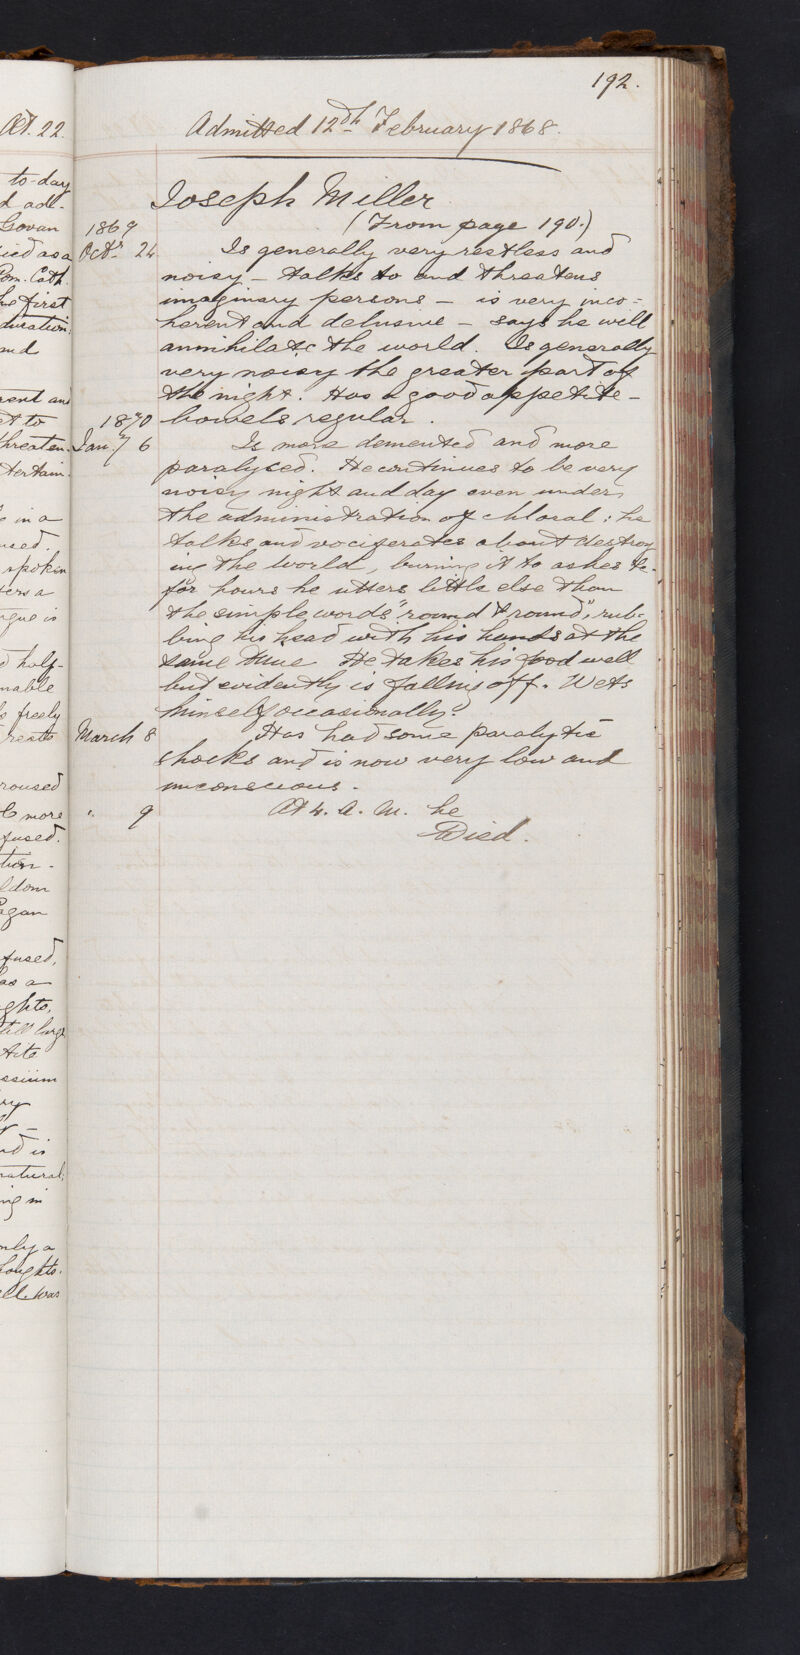 192.
Admitted 12th February 1868.
Joseph Miller
(From page 190.)
1869
Octr. 24 Is generally very restless and
noisy – talks to and threatens
imaginary persons – is very inco=
herent and delusive – says he will
annihilate the world. Is generally
very noisy the greater part of
the night. Has a good appetite –
bowels regular.
1870
Jany. 6 Is more demented and more
paralysed. He continues to be very
noisy night and day even under
the administration of chloral; he
talks and vociferates about destroy
ing the world, burning it to ashes &c.
for hours he utters little else than
the simple words "round & round", rub-
bing his head with his hands at the
same time He takes his food well
but evidently is falling off. Wets
himself occasionally.
March 8 Has had some paralytic
shocks and is now very low and
unconscious.
" 9 At 4. A. M. he
Died.
Æt. 22.
to-day
Govan
ied as a
Rom. Cath.
he first
duration;
nd
rent and
et to
threaten-
tertain
s in a
used.
spoken
ters a
ngue is
d half-
nable
s freely
rests
roused
& more
fused.
tion-
ldom
agan
fused,
as a
ghts,
till large
tite
ssium
ry
nd is
natural;
ing in
nly a
houghts.
ell was